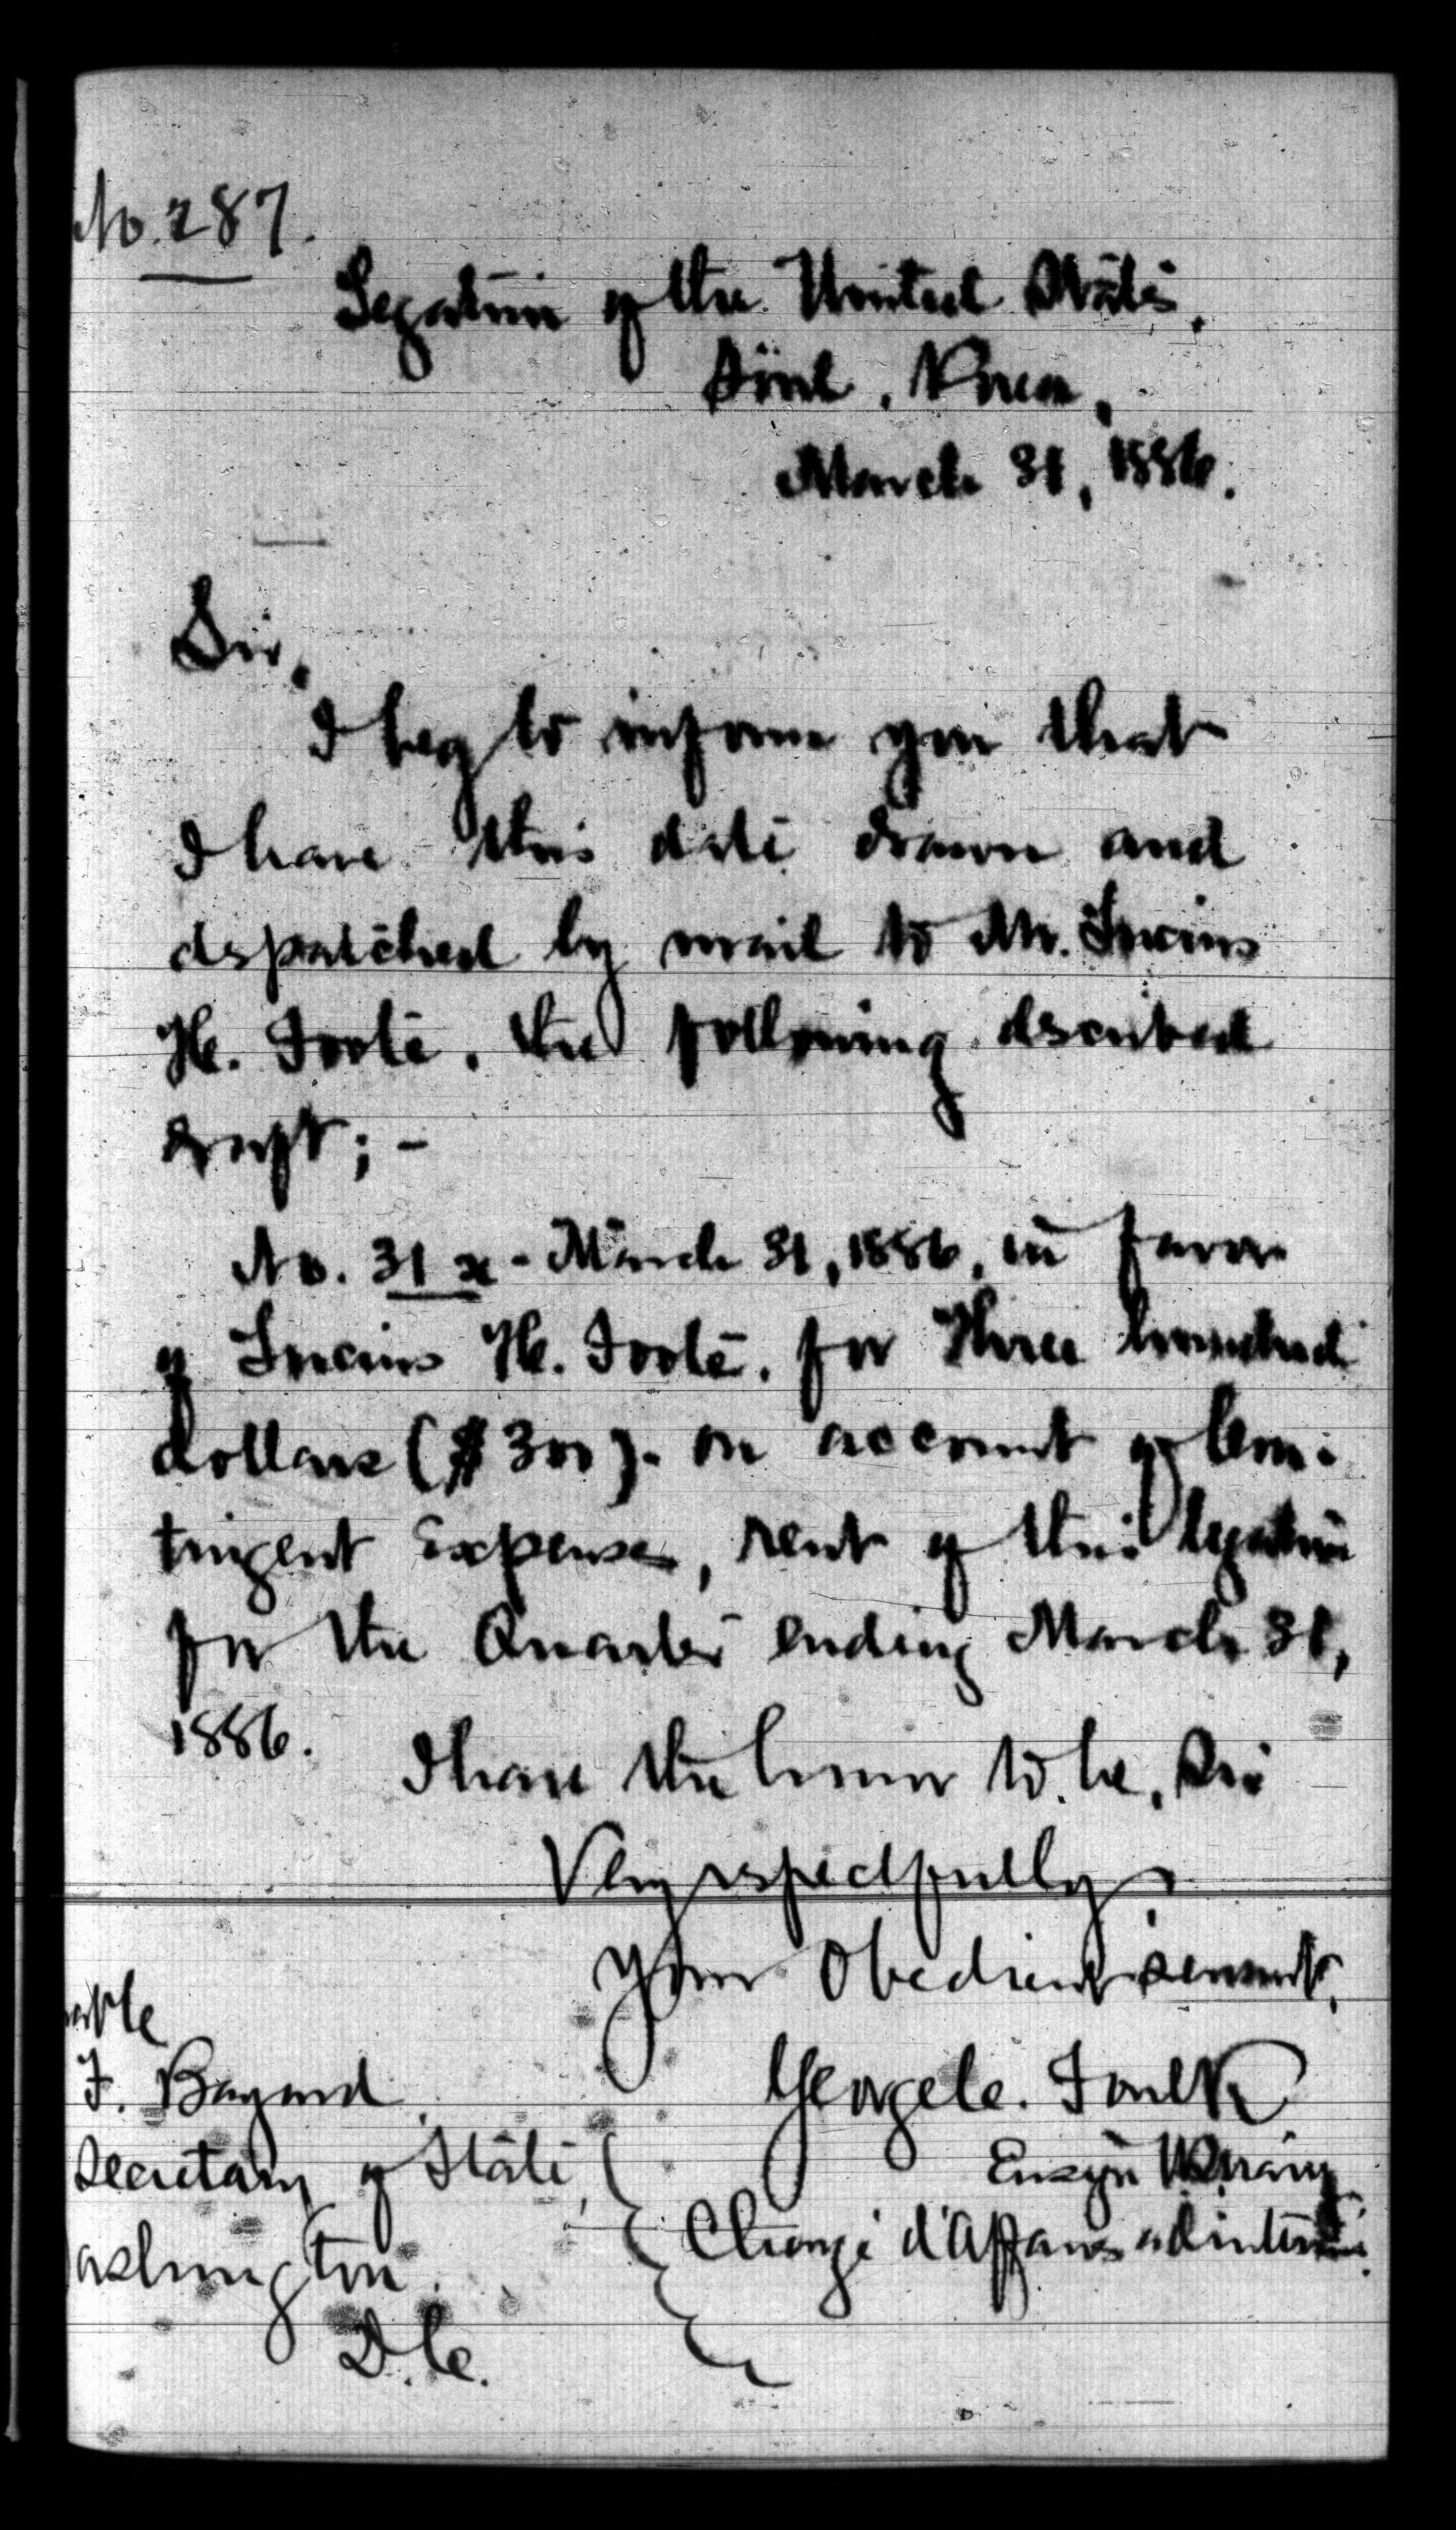 No. 287.
Legation of the United States,
Söul, Korea,
March 31, 1886.
Sir,
I beg to inform you that
I have this date drawn and
dspatched by mail to Mr. Lucius
H. Foote, the following dscribed
draft; -
No. 31 x - March 31, 1886, in favor
of Lucius H. Foote, for Three hundred
dollars ($300). on account of Con-
tingent Expenses, rent of this legation
for the Quarter ending March 31,
1886.
I have the honor to be, Sir
Very rspectfully,
Your Obedient servant,
F. Bayard
George C. Foulk
Secretary of State,
Ensign U.S. Navy
ashington.
Chargé d'Affaires ad interim.
D.C.